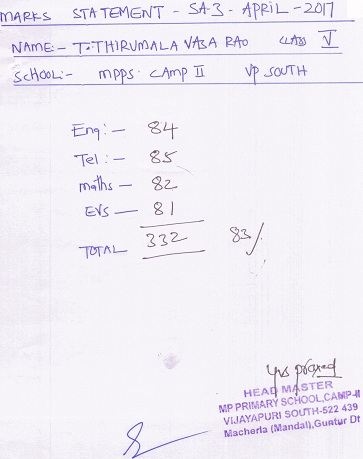 MARKS STATEMENT - SA-3 - APRIL - 2017
NAME:- T. THIRUMALA VASA RAO CLASS V
SCHOOL:- MPPS. CAMP II VP SOUTH
Eng:- 84
Tel:- 85
maths - 82
EVS - 81
TOTAL 332 83/.
HEAD MASTER
MP PRIMARY SCHOOL, CAMP-II
VIJAYAPURI SOUTH-522 439
Macherla (Mandal), Guntur Dt